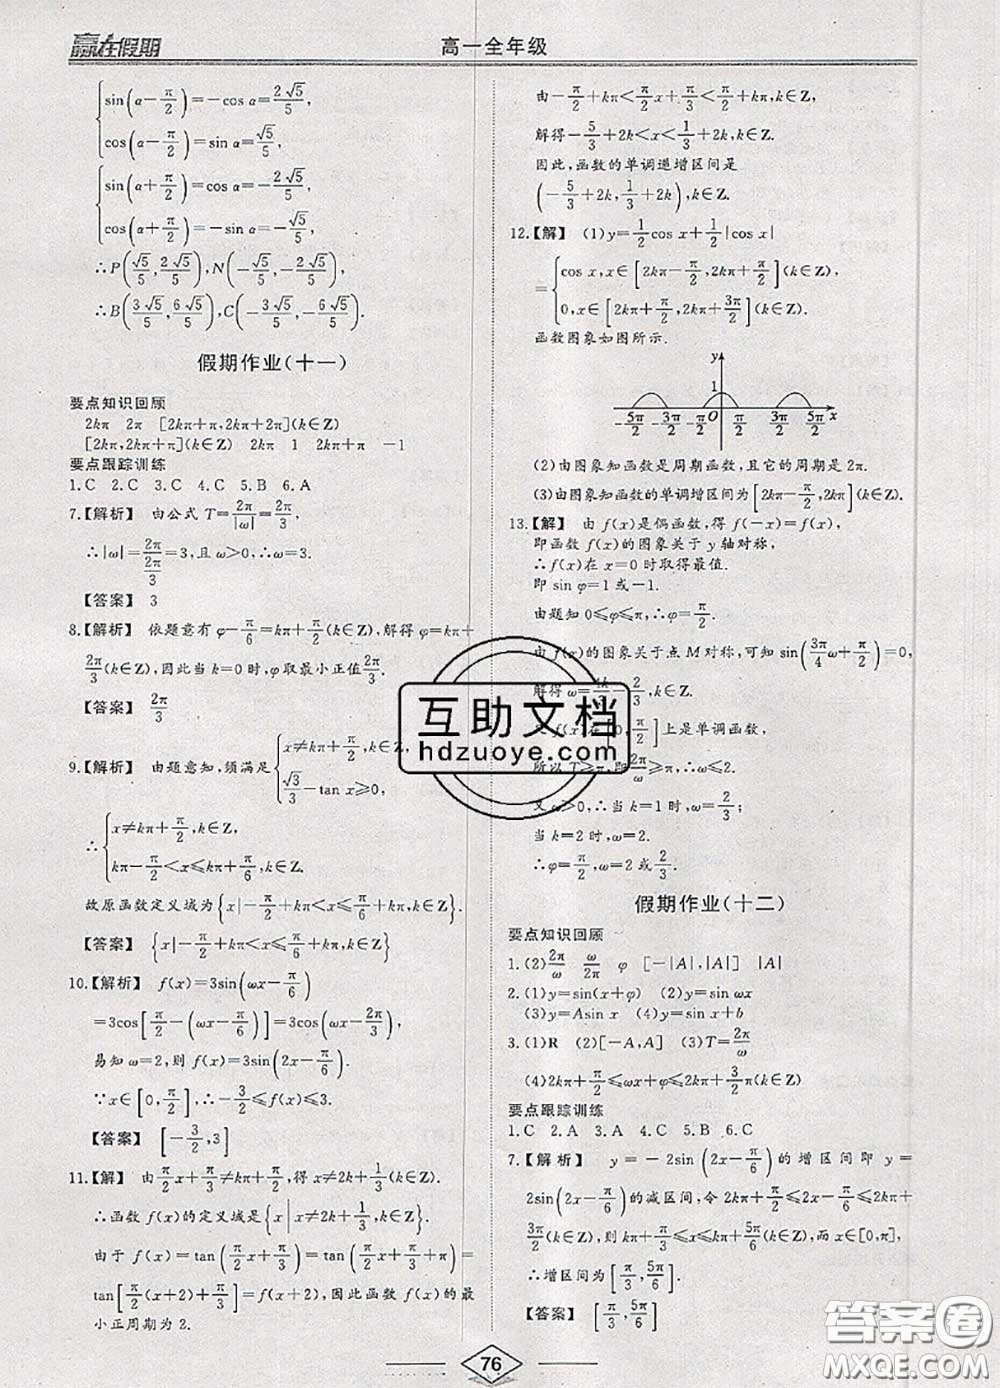 赢在假期
高一全年级
{sin(α-π/2)=-cos α=2√5/5,
cos(α-π/2)=sin α=√5/5,
{sin(α+π/2)=cos α=-√5/5,
cos(α+π/2)=-sin α=-√5/5,
∴P(√5/5,2√5/5),N(-√5/5,-2√5/5),
∴B(3√5/5,6√5/5),C(-3√5/5,-6√5/5).
假期作业(十一)
要点知识回顾
2kπ 2π [2kπ+π,2kπ+2π](k∈Z)
[2kπ,2kπ+π](k∈Z) 2kπ 1 2kπ+π -1
要点跟踪训练
1.C 2.C 3.C 4.C 5.B 6.A
7.【解析】 由公式 T=2π/|ω|=2π/3,
∴|ω|=2π/(2π/3)=3,且 ω>0,∴ω=3.
【答案】 3
8.【解析】 依题意有 φ-π/6=kπ+π/2(k∈Z),解得 φ=kπ+
2π/3(k∈Z),因此当 k=0 时,φ取最小正值2π/3.
【答案】 2π/3
9.【解析】 由题意知,须满足{x≠kπ+π/2,k∈Z,
√3/3-tan x≥0,
∴{x≠kπ+π/2,k∈Z,
kπ-π/2<x≤kπ+π/6,k∈Z.
故原函数定义域为{x|-π/2+kπ<x≤π/6+kπ,k∈Z}.
【答案】 {x|-π/2+kπ<x≤π/6+kπ,k∈Z}
10.【解析】 f(x)=3sin(ωx-π/6)
=3cos[π/2-(ωx-π/6)]=3cos(ωx-2π/3),
易知 ω=2,则 f(x)=3sin(2x-π/6).
∵x∈[0,π/2],∴-3/2≤f(x)≤3.
【答案】 [-3/2,3]
11.【解】 由π/2x+π/3≠kπ+π/2,得 x≠2k+1/3(k∈Z).
∴函数 f(x)的定义域是{x|x≠2k+1/3,k∈Z}.
由于 f(x)=tan(π/2x+π/3)=tan(π/2x+π/3+π)=
tan[π/2(x+2)+π/3]=f(x+2),因此函数 f(x)的最
小正周期为 2.
由-π/2+kπ<π/2x+π/3<π/2+kπ,k∈Z,
解得-5/3+2k<x<1/3+2k,k∈Z.
因此,函数的单调递增区间是
(-5/3+2k,1/3+2k),k∈Z.
12.【解】 (1)y=1/2cos x+1/2|cos x|
={cos x,x∈[2kπ-π/2,2kπ+π/2](k∈Z),
0,x∈[2kπ+π/2,2kπ+3π/2](k∈Z).
函数图象如图所示.
y
1
-5π/2 -3π/2 -π/2 O π/2 3π/2 5π/2 x
(2)由图象知函数是周期函数,且它的周期是 2π.
(3)由图象知函数的单调增区间为[2kπ-π/2,2kπ](k∈Z).
13.【解】 由 f(x)是偶函数,得 f(-x)=f(x),
即函数 f(x)的图象关于 y 轴对称,
∴f(x)在 x=0 时取得最值.
即 sin φ=1 或-1.
由题知 0≤φ≤π,∴φ=π/2.
由 f(x)的图象关于点 M 对称,可知 sin(3π/4ω+π/2)=0,
解得 ω=4k/3-2/3,k∈Z.
又 f(x)在[0,π/2]上是单调函数,
所以 T≥π,即2π/ω≥π,∴ω≤2.
又 ω>0,∴当 k=1 时,ω=2/3;
当 k=2 时,ω=2.
∴φ=π/2,ω=2 或2/3.
假期作业(十二)
要点知识回顾
1.(2)2π/ω ω/2π φ [-|A|,|A|] |A|
2.(1)y=sin(x+φ) (2)y=sin ωx
(3)y=Asin x (4)y=sin x+b
3.(1)R (2)[-A,A] (3)T=2π/ω
(4)2kπ+π/2≤ωx+φ≤2kπ+3π/2(k∈Z)
要点跟踪训练
1.C 2.A 3.A 4.C 5.B 6.C
7.【解析】 y=-2sin(2x-π/6)的增区间即 y=
2sin(2x-π/6)的减区间,令 2kπ+π/2≤2x-π/6≤2kπ+
3π/2(k∈Z),则 kπ+π/3≤x≤kπ+5π/6(k∈Z),而 x∈[0,π],
∴增区间为[π/3,5π/6].
【答案】 [π/3,5π/6]
76
互助文档
hdzuoye.com
答案圈
MXQE.COM